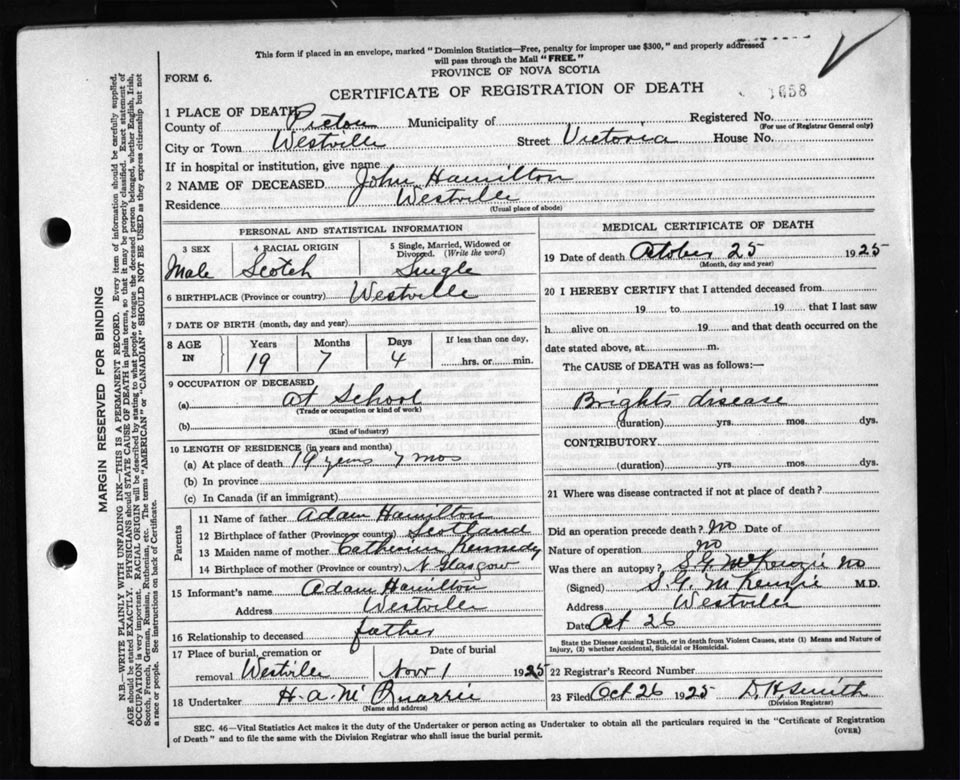 This form if placed in an envelope, marked "Dominion Statistics—Free, penalty for improper use $300," and properly addressed
will pass through the Mail "FREE."
PROVINCE OF NOVA SCOTIA
FORM 6.
CERTIFICATE OF REGISTRATION OF DEATH
1658
1 PLACE OF DEATH
Registered No.
(For use of Registrar General only)
County of Pictou Municipality of
City or Town Westville Street Victoria House No.
If in hospital or institution, give name
2 NAME OF DECEASED John Hamilton
Residence Westville
(Usual place of abode)
PERSONAL AND STATISTICAL INFORMATION
3 SEX 4 RACIAL ORIGIN 5 Single, Married, Widowed or
Divorced. (Write the word)
Male Scotch Single
6 BIRTHPLACE (Province or country) Westville
7 DATE OF BIRTH (month, day and year)
8 AGE IN Years Months Days If less than one day,
19 7 4 hrs. or min.
9 OCCUPATION OF DECEASED
(a) At School
(Trade or occupation or kind of work)
(b)
(Kind of industry)
10 LENGTH OF RESIDENCE (in years and months)
(a) At place of death 19 years 7 mos
(b) In province
(c) In Canada (if an immigrant)
Parents
11 Name of father Adam Hamilton
12 Birthplace of father (Province or country) Scotland
13 Maiden name of mother Catherine Kennedy
14 Birthplace of mother (Province or country) N. Glasgow
15 Informant's name Adam Hamilton
Address Westville
16 Relationship to deceased father
17 Place of burial, cremation or Date of burial
removal Westville Nov 1 1925
18 Undertaker H. A. Mc Quarrie
(Name and address)
MEDICAL CERTIFICATE OF DEATH
19 Date of death October 25 1925
(Month, day and year)
20 I HEREBY CERTIFY that I attended deceased from
19 to 19 that I last saw
h alive on 19 and that death occurred on the
date stated above, at m.
The CAUSE of DEATH was as follows:—
Brights disease
(duration) yrs. mos. dys.
CONTRIBUTORY
(duration) yrs. mos. dys.
21 Where was disease contracted if not at place of death?
Did an operation precede death? No Date of
Nature of operation no
Was there an autopsy? S. G. McKenzie no
(Signed) S. G. McKenzie M.D.
Address Westville
Date Oct 26
State the Disease causing Death, or in death from Violent Causes, state (1) Means and Nature of
Injury, (2) whether Accidental, Suicidal or Homicidal.
22 Registrar's Record Number
23 Filed Oct 26 1925 D H Smith
(Division Registrar)
SEC. 46—Vital Statistics Act makes it the duty of the Undertaker or person acting as Undertaker to obtain all the particulars required in the "Certificate of Registration
of Death" and to file the same with the Division Registrar who shall issue the burial permit.
(OVER)
MARGIN RESERVED FOR BINDING
N.B.—WRITE PLAINLY WITH UNFADING INK—THIS IS A PERMANENT RECORD. Every item of information should be carefully supplied.
AGE should be stated EXACTLY. PHYSICIANS should STATE CAUSE OF DEATH in plain terms, so that it may be properly classified. Exact statement of
OCCUPATION is very important. RACIAL ORIGIN will be described by stating to what people or tongue the deceased person belonged, whether English, Irish,
Scotch, French, German, Russian, Ruthenian, etc. The terms "AMERICAN" or "CANADIAN" SHOULD NOT BE USED as they express citizenship but not
a race or people. See instructions on back of Certificate.